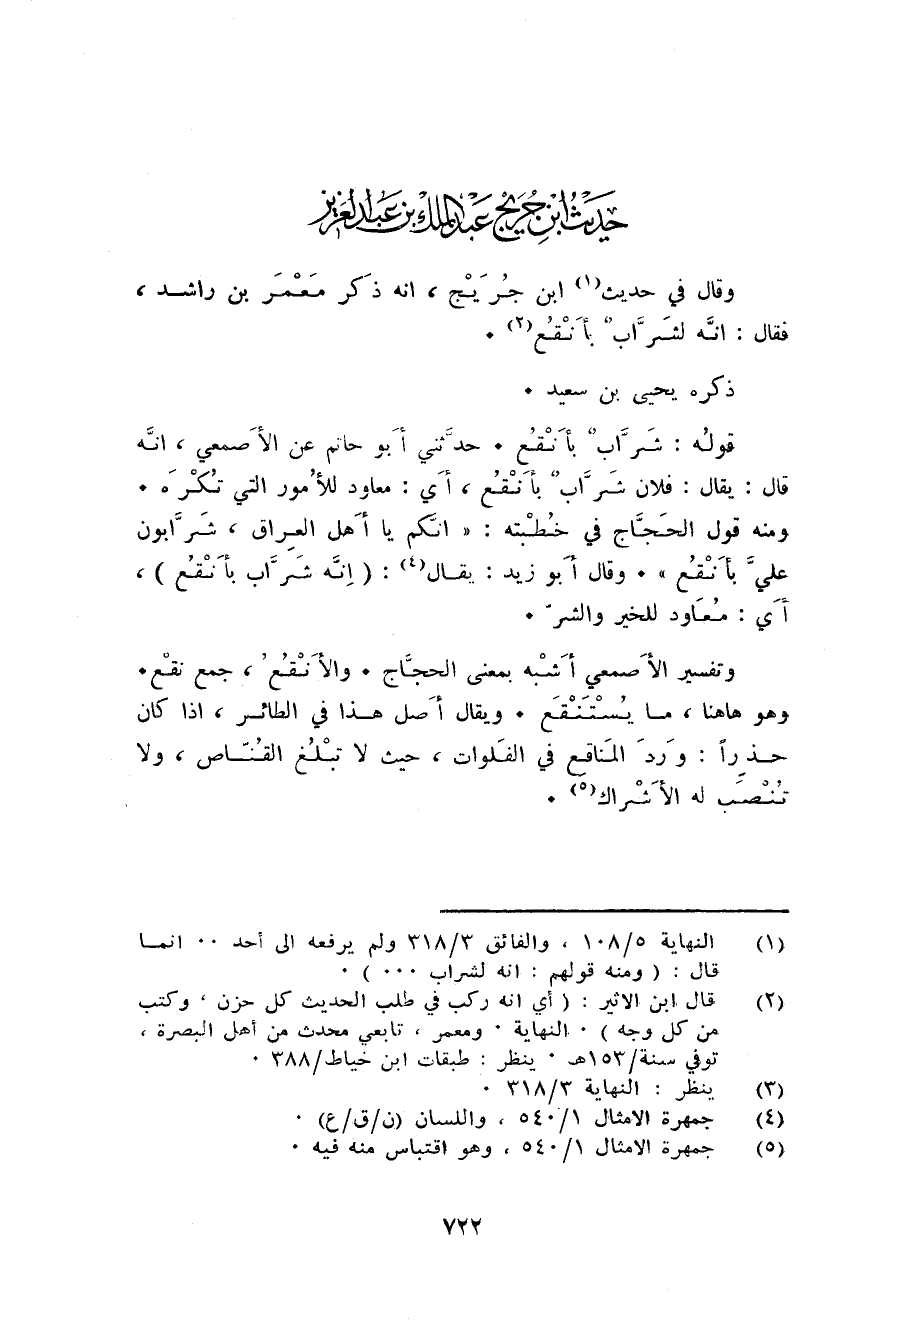 حديث ابن جريج عبد الملك بن عبد العزيز
وقال في حديث(١) ابن جُرَيْج ، انه ذَكر مَعْمَر بن راشد ،
فقال : انَّه لشَرَّابٌ بأَنْقُع(٢) ٠
ذكره يحيى بن سعيد ٠
قولُه : شَرَّابٌ بأَنْقُع ٠ حدَّثني أَبو حاتم عن الأَصمعي ، انَّه
قال : يقال : فلان شَرَّابٌ بأَنْقُع ، أَي : معاود للأُمور التي تُكْرَه ٠
ومنه قول الحَجَّاج في خُطْبته : « انَّكم يا أَهل العِراق ، شَرَّابون
عليَّ بأَنْقُع » ٠ وقال أَبو زيد : يقال(٤) : ( إنَّه شَرَّاب بأَنْقُع ) ،
أَي : مُعَاود للخير والشرّ ٠
وتفسير الأَصمعي أَشْبه بمعنى الحجَّاج ٠ والأَنْقُعُ ، جمع نقْع٠
وهو هاهنا ، ما يُسْتَنْقَع ٠ ويقال أَصل هذا في الطائر ، اذا كان
حذِراً : وَرَدَ المَناقع في الفَلوات ، حيث لا تبْلُغ القُنّاص ، ولا
تُنْصَب له الأَشْراك(٥) ٠
(١) النهاية ١٠٨/٥ ، والفائق ٣١٨/٣ ولم يرفعه الى أحد ٠٠ انما
قال : ( ومنه قولهم : انه لشراب ٠٠٠ ) ٠
(٢) قال ابن الاثير : ( أي انه ركب في طلب الحديث كل حزن ، وكتب
من كل وجه ) ٠ النهاية ٠ ومعمر ، تابعي محدث من أهل البصرة ،
توفي سنة/١٥٣هـ ٠ ينظر : طبقات ابن خياط/٣٨٨ ٠
(٣) ينظر : النهاية ٣١٨/٣ ٠
(٤) جمهرة الامثال ٥٤٠/١ ، واللسان (ن/ق/ع) ٠
(٥) جمهرة الامثال ٥٤٠/١ ، وهو اقتباس منه فيه ٠
٧٢٢